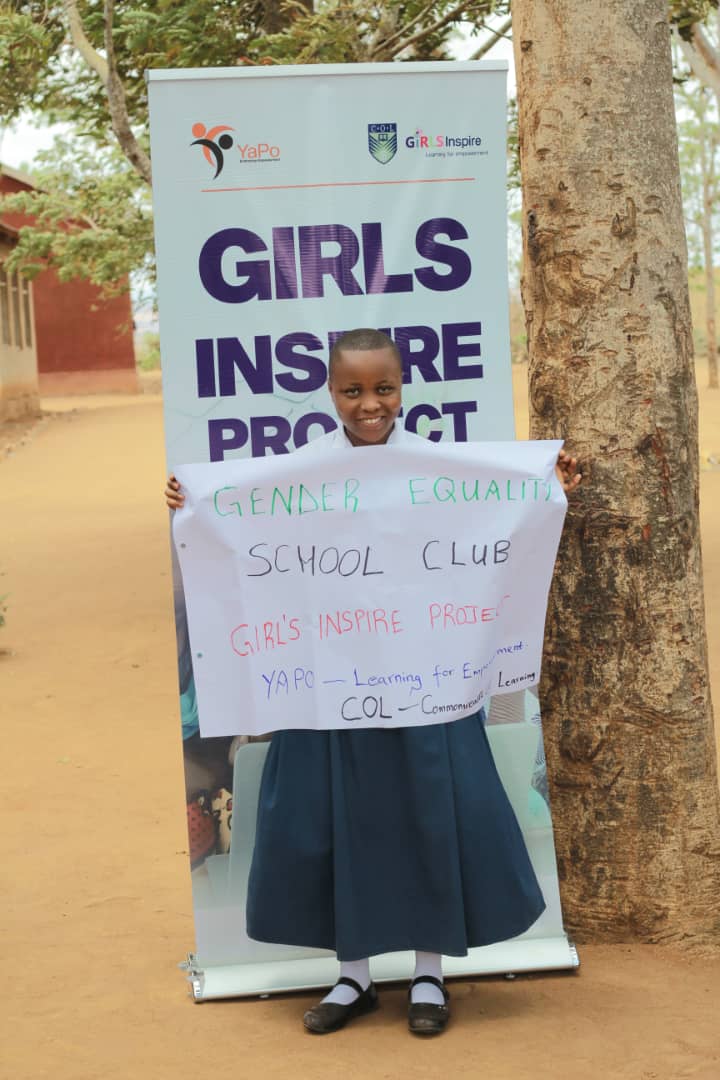 YaPo
C·O·L
GiRLS Inspire
Learning for empowerment
GIRLS
INSPIRE
PROJECT
GENDER EQUALITY
SCHOOL CLUB
GIRL'S INSPIRE PROJEC
YAPO — Learning for Empowerment.
COL — Commonwealth Learning